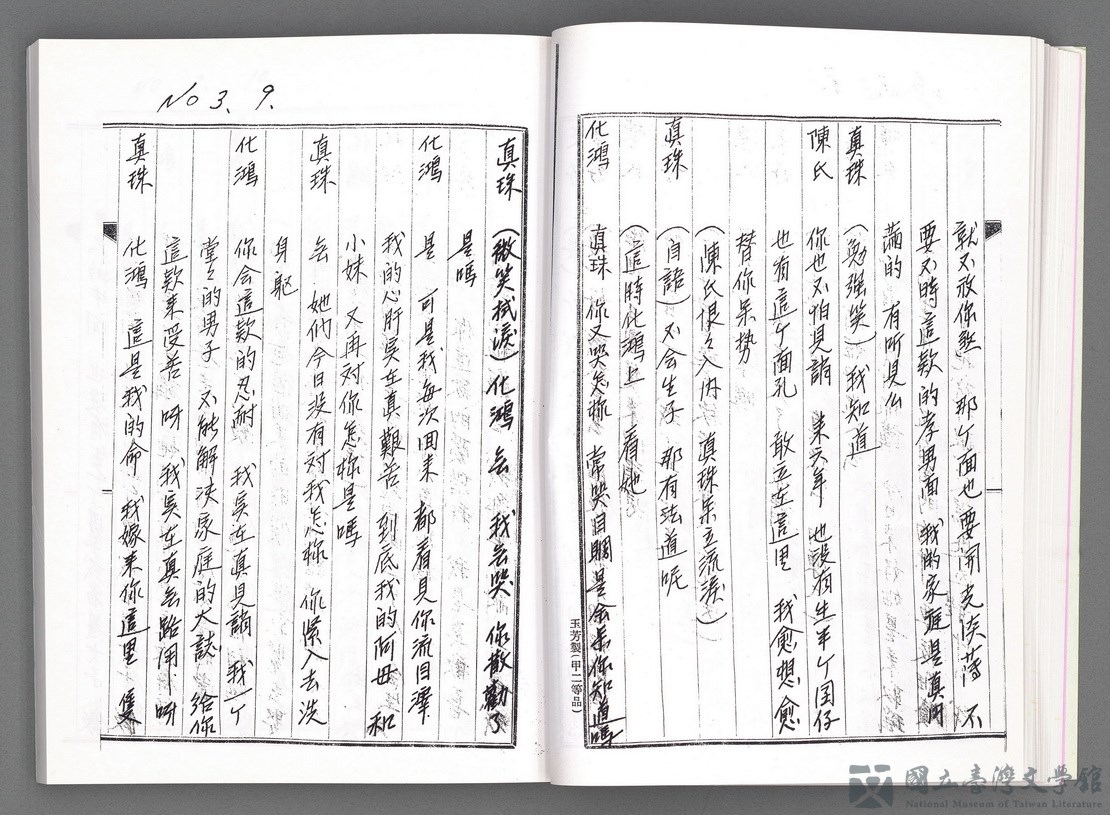 就不放你煞 那个面也要開光淡薄 不
要不時這款的孝男面 我的家庭是真円
滿的 有听見么
真珠 (勉强笑)我知道
陳氏 你也不怕見誚 来六年 也没有生半个囝仔
也有這个面孔 敢立在這里 我愈想愈
替你呆势
(陳氏恨々入内 真珠呆立流淚)
真珠 (自語)不会生子 那有法道呢
(這時化鴻上 看她)
化鴻 真珠 你又哭怎様 常哭目睭是会呆你知道嗎
玉芳製(甲二等品)
No 3. 9.
真珠 (微笑拭淚)化鴻 无 我无哭 你散勸了
是嗎
化鴻 是 可是我每次回来 都看見你流目滓
我的心肝吴在真艱苦 到底我的阿母 和
小妹 又再对你怎様是嗎
真珠 无 她们今日没有对我怎様 你緊入去洗
身躯
化鴻 你会這款的忍耐 我吴在真見誚 我一个
堂々的男子 不能解决家庭的大誌 給你
這款来受苦 呀 我吴在真无路用 呀
真珠 化鴻 這是我的命 我嫁来你這里 隻
國立臺灣文學館
National Museum of Taiwan Literature